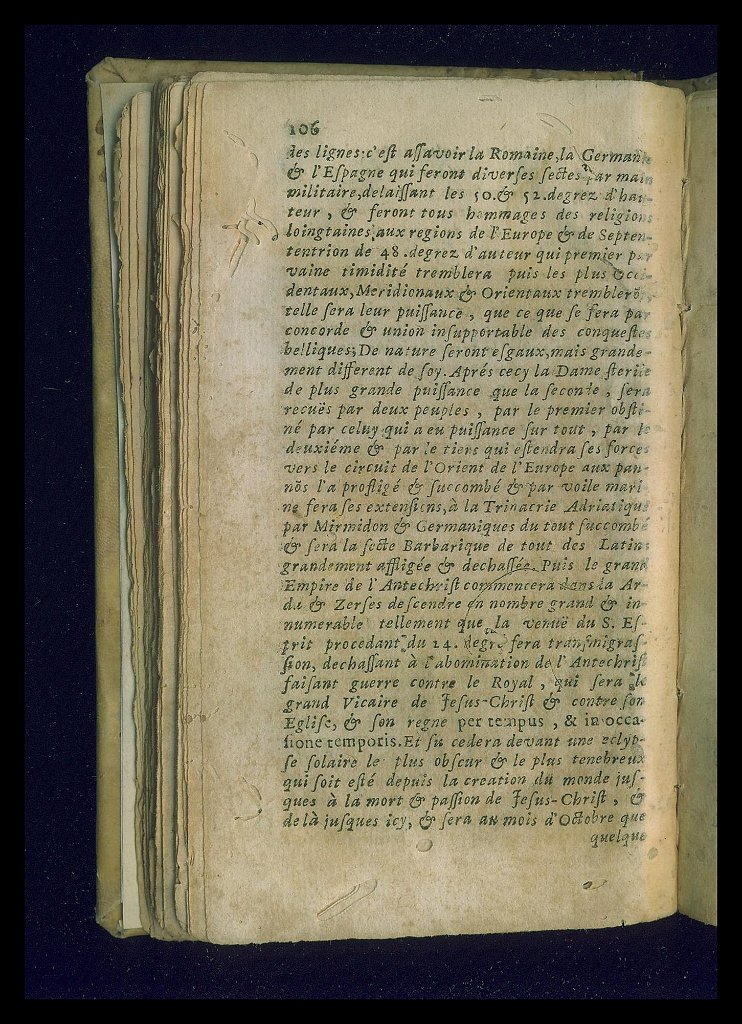 106
des lignes: c'eſt aſſavoir la Romaine, la Germanie
& l'Eſpagne qui feront diverſes ſectes par main
militaire, delaiſſant les 50. & 52. degrez d'hau-
teur, & feront tous hommages des religions
loingtaines aux regions de l'Europe & de Septen-
tentrion de 48. degrez d'auteur qui premier par
vaine timidité tremblera puis les plus Occi-
dentaux, Meridionaux & Orientaux tremblerõt,
telle ſera leur puiſſance, que ce que ſe fera par
concorde & union inſupportable des conqueſtes
belliques; De nature ſeront eſgaux, mais grande-
ment different de foy. Aprés cecy la Dame ſterile
de plus grande puiſſance que la ſeconde, ſera
recuës par deux peuples, par le premier obſti-
né par celuy qui a eu puiſſance ſur tout, par le
deuxiéme & par le tiers qui eſtendra ſes forces
vers le circuit de l'Orient de l'Europe aux pan-
nõs l'a profligé & ſuccombé & par voile mari-
ne fera ſes extenſions, à la Trinacrie Adriatique
par Mirmidon & Germaniques du tout ſuccombé
& ſera la ſecte Barbarique de tout des Latins
grandement affligée & dechaſſée. Puis le grand
Empire de l'Antechriſt commencera dans la Ar-
da & Zerfes deſcendre en nombre grand & in-
numerable tellement que la venuë du S. Eſ-
prit procedant du 24. degré fera tranſmigraſ-
ſion, dechaſſant à l'abomination de l'Antechriſt
faiſant guerre contre le Royal, qui ſera le
grand Vicaire de Jeſus-Chriſt & contre ſon
Egliſe, & ſon regne per tempus, & in occa-
ſione temporis. Et ſu cedera devant une eclyp-
ſe ſolaire le plus obſcur & le plus tenebreux
qui ſoit eſté depuis la creation du monde juſ-
ques à la mort & paſſion de Jeſus-Chriſt, &
de là juſques icy, & ſera au mois d'Octobre que
quelque